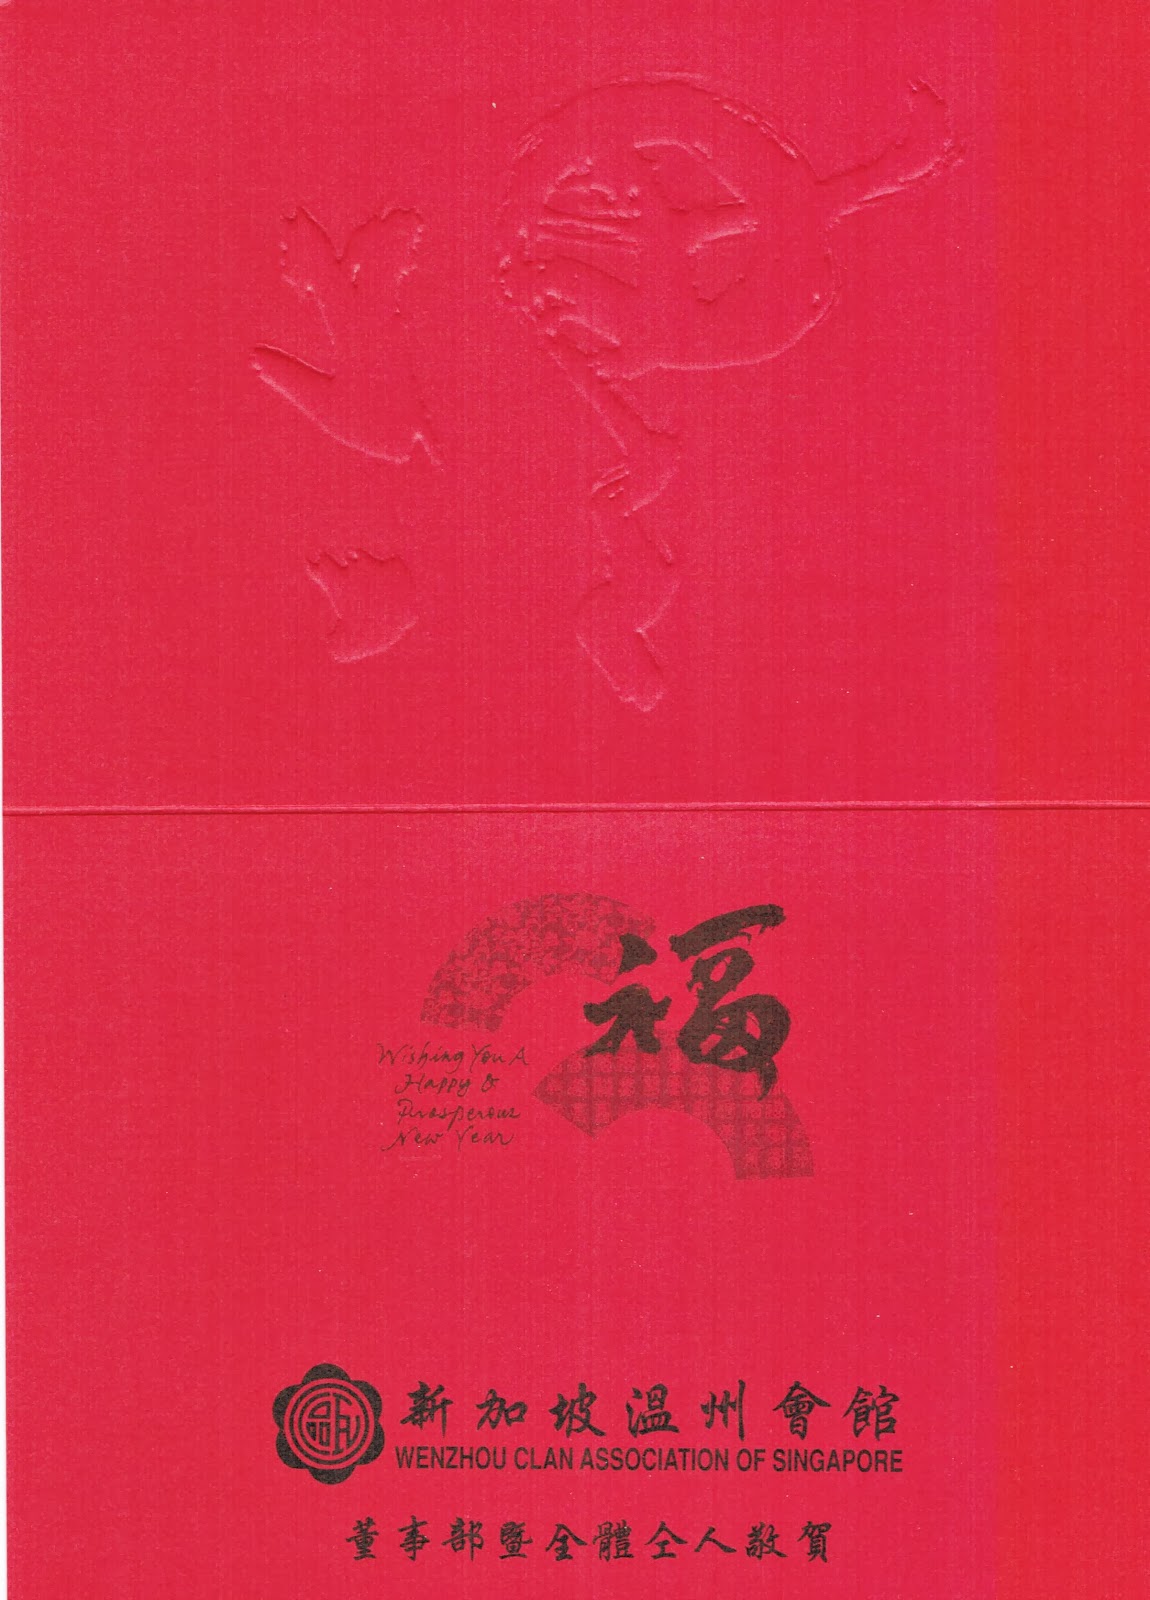 福
Wishing You A
Happy &
Prosperous
New Year
新加坡溫州會館
WENZHOU CLAN ASSOCIATION OF SINGAPORE
董事部暨全體仝人敬賀